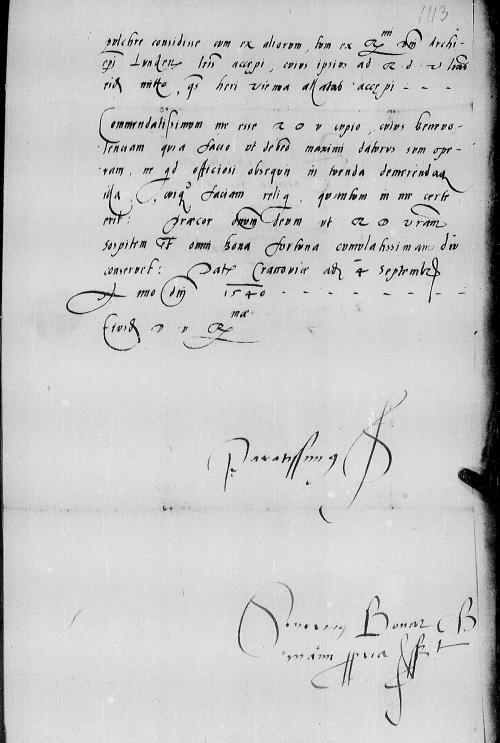 1113
pulchre considisse cum ex aliorum, tum ex R^mi dni Archi-
epi Lunden lris accepi, cuius ipsius ad R. d. v lras
eid mitto, qs heri Vienna allatas accepi - - -
Commendatissimum me esse R D V cupio, cuius benevo-
lentiam quia facio ut debeo maximi daturus sum ope-
ram, ne qd officiosi obsequii in tuenda demerendaq
illa, faciam reliq, quantum in me certe
erit: Præcor dnum deum ut R D Vram
sospitem et omni bona fortuna cumulatissimam diu
conservet: Dat Cracoviæ 4 Septembr
Anno dni 1540 - - - - - - -
Eiusd D V R^mæ
Paratissimus
Severinus Bonar B
manu ppria sspt